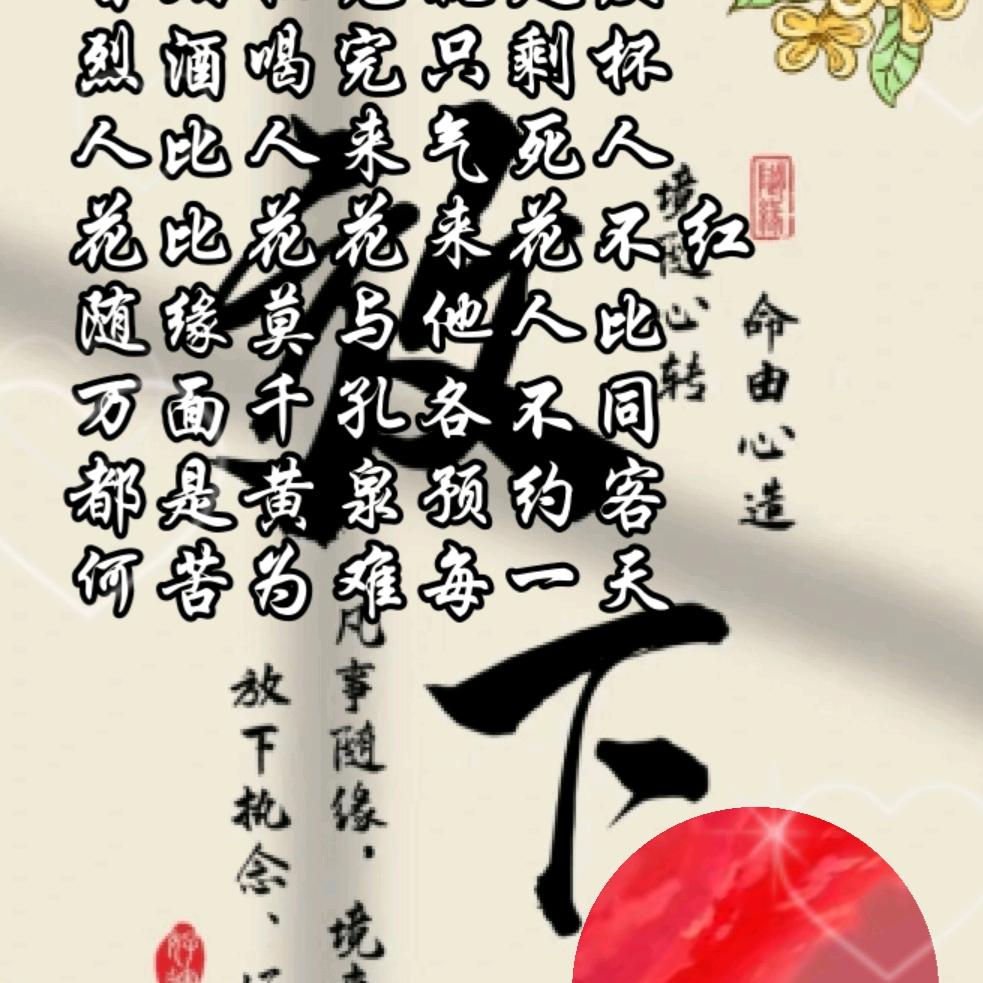 烈酒喝完只剩杯
人比人来气死人
花比花花来花不红
随缘莫与他人比
万面千孔各不同
都是黄泉预约客
何苦为难每一天
放下
境随心转
命由心造
凡事隨缘，境
放下执念、